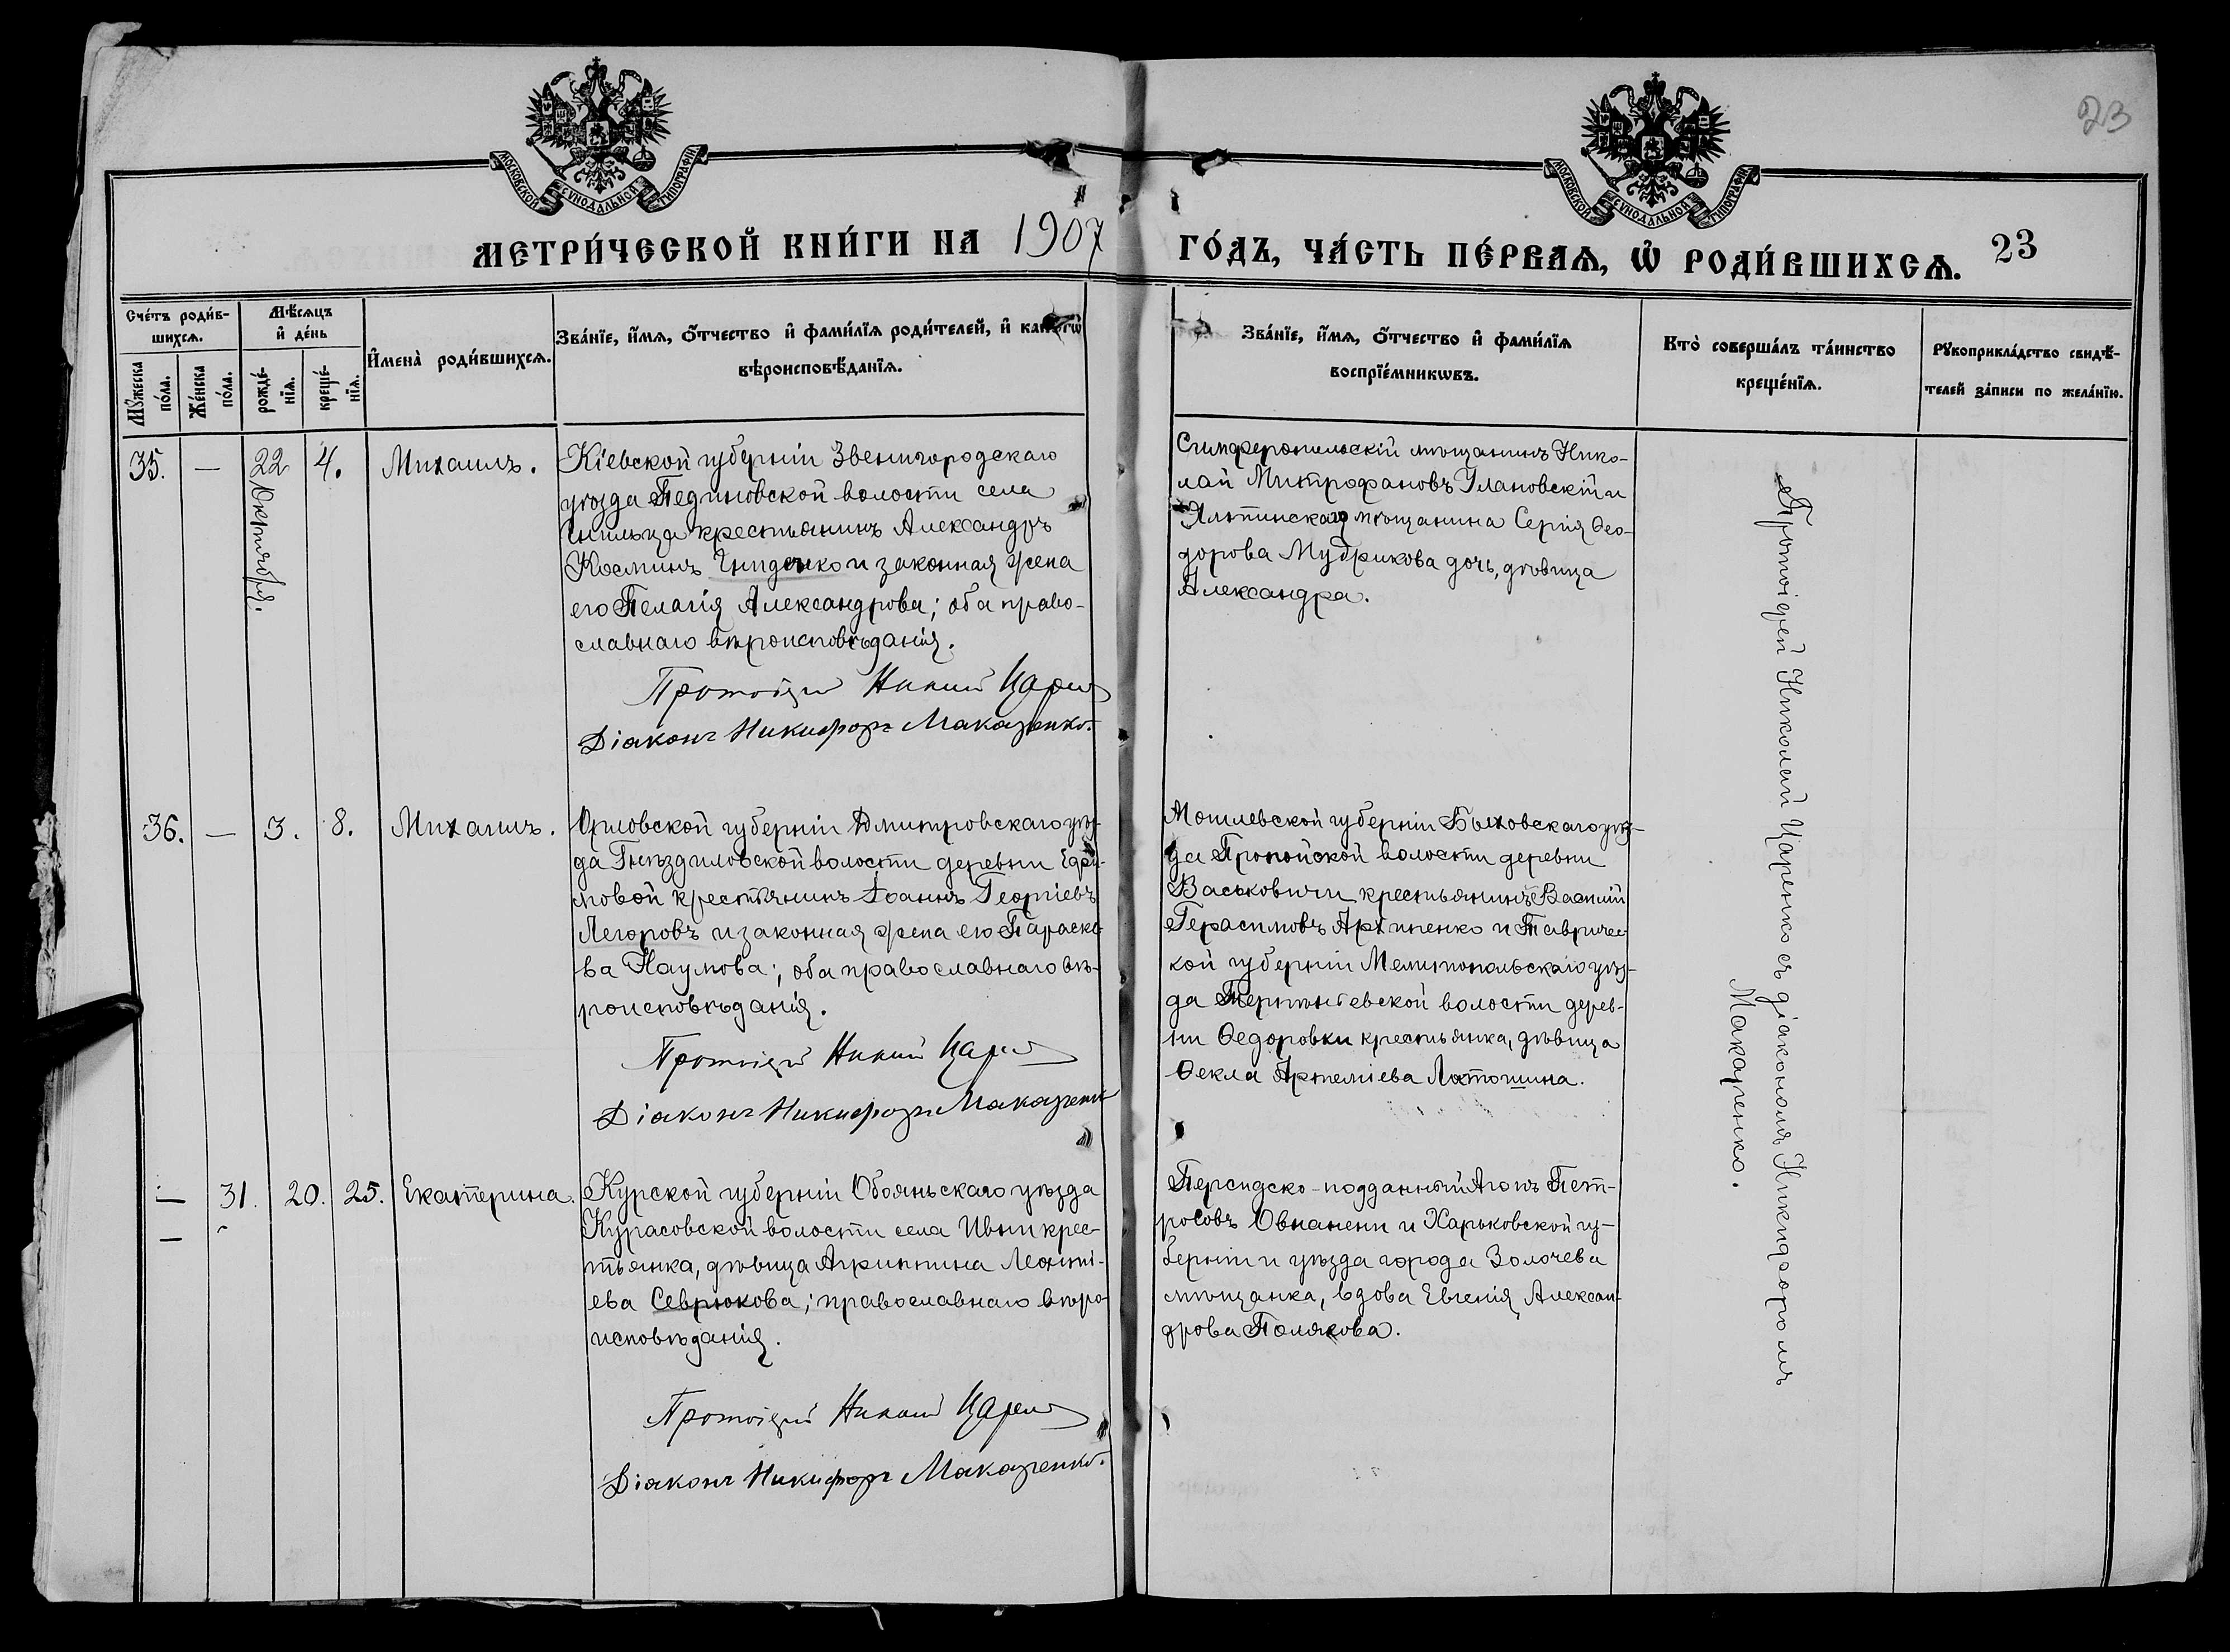 23
МОСКОВСКОЙ СУНОДАЛЬНОЙ ТИПОГРАФІИ
МОСКОВСКОЙ СУНОДАЛЬНОЙ ТИПОГРАФІИ
МЕТРИ́ЧЕСКОЙ КНИ́ГИ НА 1907 ГО́ДЪ, ЧА́СТЬ ПЕ́РВАѦ, Ѡ҆ РОДИ́ВШИХСѦ. 23
Сче́тъ роди́вшихсѧ.
Мꙋ́жеска по́ла.
Же́нска по́ла.
Мѣ́сѧцъ и҆ де́нь
рожде́нїѧ.
креще́нїѧ.
И҆мена̀ роди́вшихсѧ.
Зва́нїе, и҆́мѧ, ѻ҆́тчество и҆ фами́лїѧ роди́телей, и҆ како́гѡ
вѣроисповѣ́данїѧ.
Зва́нїе, и҆́мѧ, ѻ҆́тчество и҆ фами́лїѧ
воспрїе́мникѡвъ.
Кто̀ соверша́лъ та́инство
креще́нїѧ.
Рꙋкоприкла́дство свидѣ́-
телей за́писи по жела́нїю.
35. — 22 Октября. 4. Михаилъ.
Кіевской губерніи Звенигородскаго
уѣзда Пединовской волости села
Гнильца крестьянинъ Александръ
Косминъ Гниденко и законная жена
его Пелагія Александрова; оба право-
славнаго вѣроисповѣданія.
Протоіерей Николай Царенко
Діаконъ Никифоръ Макаренко.
Симферопольскій мѣщанинъ Нико-
лай Митрофановъ Улановскій и
Ялтинскаго мѣщанина Сергія Ѳео-
дорова Мудрикова дочь, дѣвица
Александра.
Протоіерей Николай Царенко съ діакономъ Никифоромъ
Макаренко.
36. — 3. 8. Михаилъ.
Орловской губерніи Дмитровскаго уѣз-
да Гнѣздиловской волости деревни Ефи-
мовой крестьянинъ Іоаннъ Георгіевъ
Легоровъ и законная жена его Параске-
ва Наумова; оба православнаго вѣ-
роисповѣданія.
Протоіерей Николай Царенко
Діаконъ Никифоръ Макаренко
Могилевской губерніи Быховскаго уѣз-
да Пропойской волости деревни
Васьковичи крестьянинъ Василій
Герасимовъ Архипенко и Тавричес-
кой губерніи Мелитопольскаго уѣз-
да волости дерев-
ни Ѳедоровки крестьянка, дѣвица
Ѳекла Артеміева Латошина.
— 31. 20. 25. Екатерина.
—
Курской губерніи Обояньскаго уѣзда
Курасовской волости села Ивни крес-
тьянка, дѣвица Агриппина Леонті-
ева Севрюкова; православнаго вѣро-
исповѣданія.
Протоіерей Николай Царенко
Діаконъ Никифоръ Макаренко.
Персидско-подданный Агопъ Пет-
росовъ Овнаненн и Харьковской гу-
берніи и уѣзда города Золочева
мѣщанка, вдова Евгенія Алексан-
дрова Полякова.